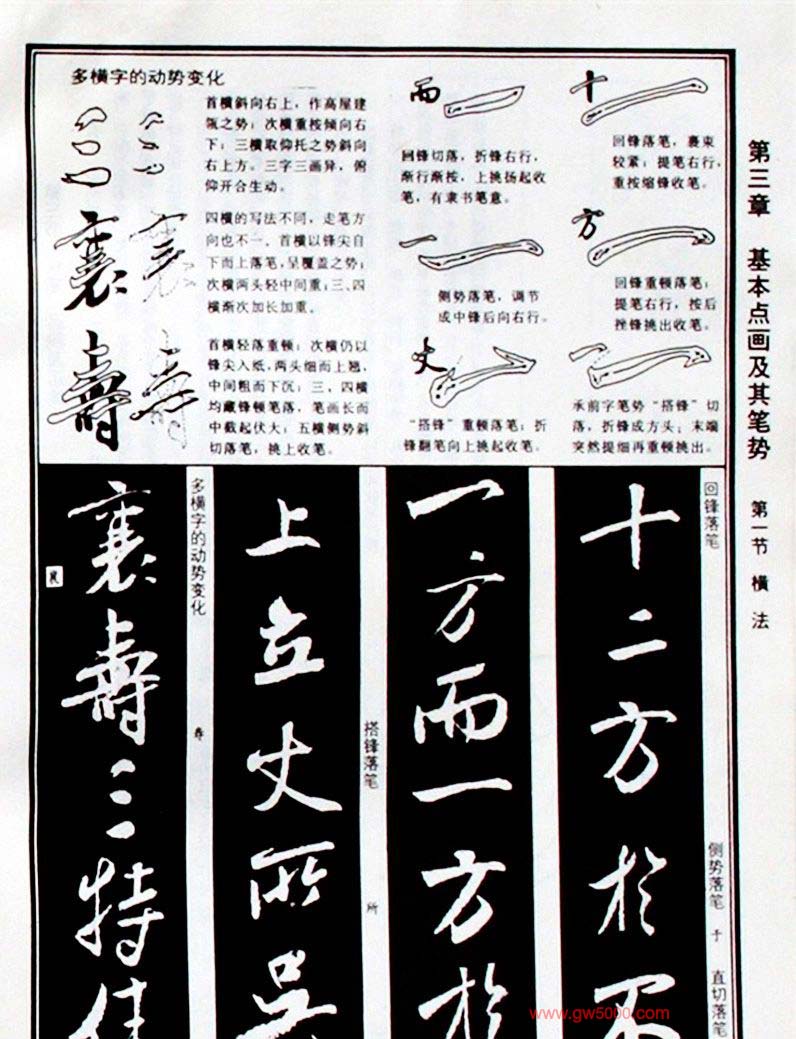 第三章 基本点画及其笔势 第一节 横法
多横字的动势变化
首横斜向右上，作高屋建
瓴之势；次横重按倾向右
下；三横取仰托之势斜向
右上方。三字三画异，俯
仰开合生动。
四横的写法不同，走笔方
向也不一。首横以锋尖自
下而上落笔，呈覆盖之势；
次横两头轻中间重；三、四
横渐次加长加重。
首横轻落重顿；次横仍以
锋尖入纸，两头细而上翘，
中间粗而下沉；三、四横
均藏锋顿笔落，笔画长而
中截起伏大；五横侧势斜
切落笔，挑上收笔。
三
襄
壽
而
回锋切落，折锋右行，
渐行渐按，上挑扬起收
笔，有隶书笔意。
一
侧势落笔，调节
成中锋后向右行。
丈
“搭锋”重顿落笔；折
锋翻笔向上挑起收笔。
十
回锋落笔，裹束
较紧；提笔右行，
重按缩锋收笔。
方
回锋重顿落笔；
提笔右行，按后
挫锋挑出收笔。
承前字笔势“搭锋”切
落，折锋成方头；末端
突然提细再重顿挑出。
回锋落笔
侧势落笔 于
直切落笔
十二方於不
一方而一方於
搭锋落笔
所
上立丈所吴
多横字的动势变化
寿
襄壽三特佳
襄
www.gw5000.com